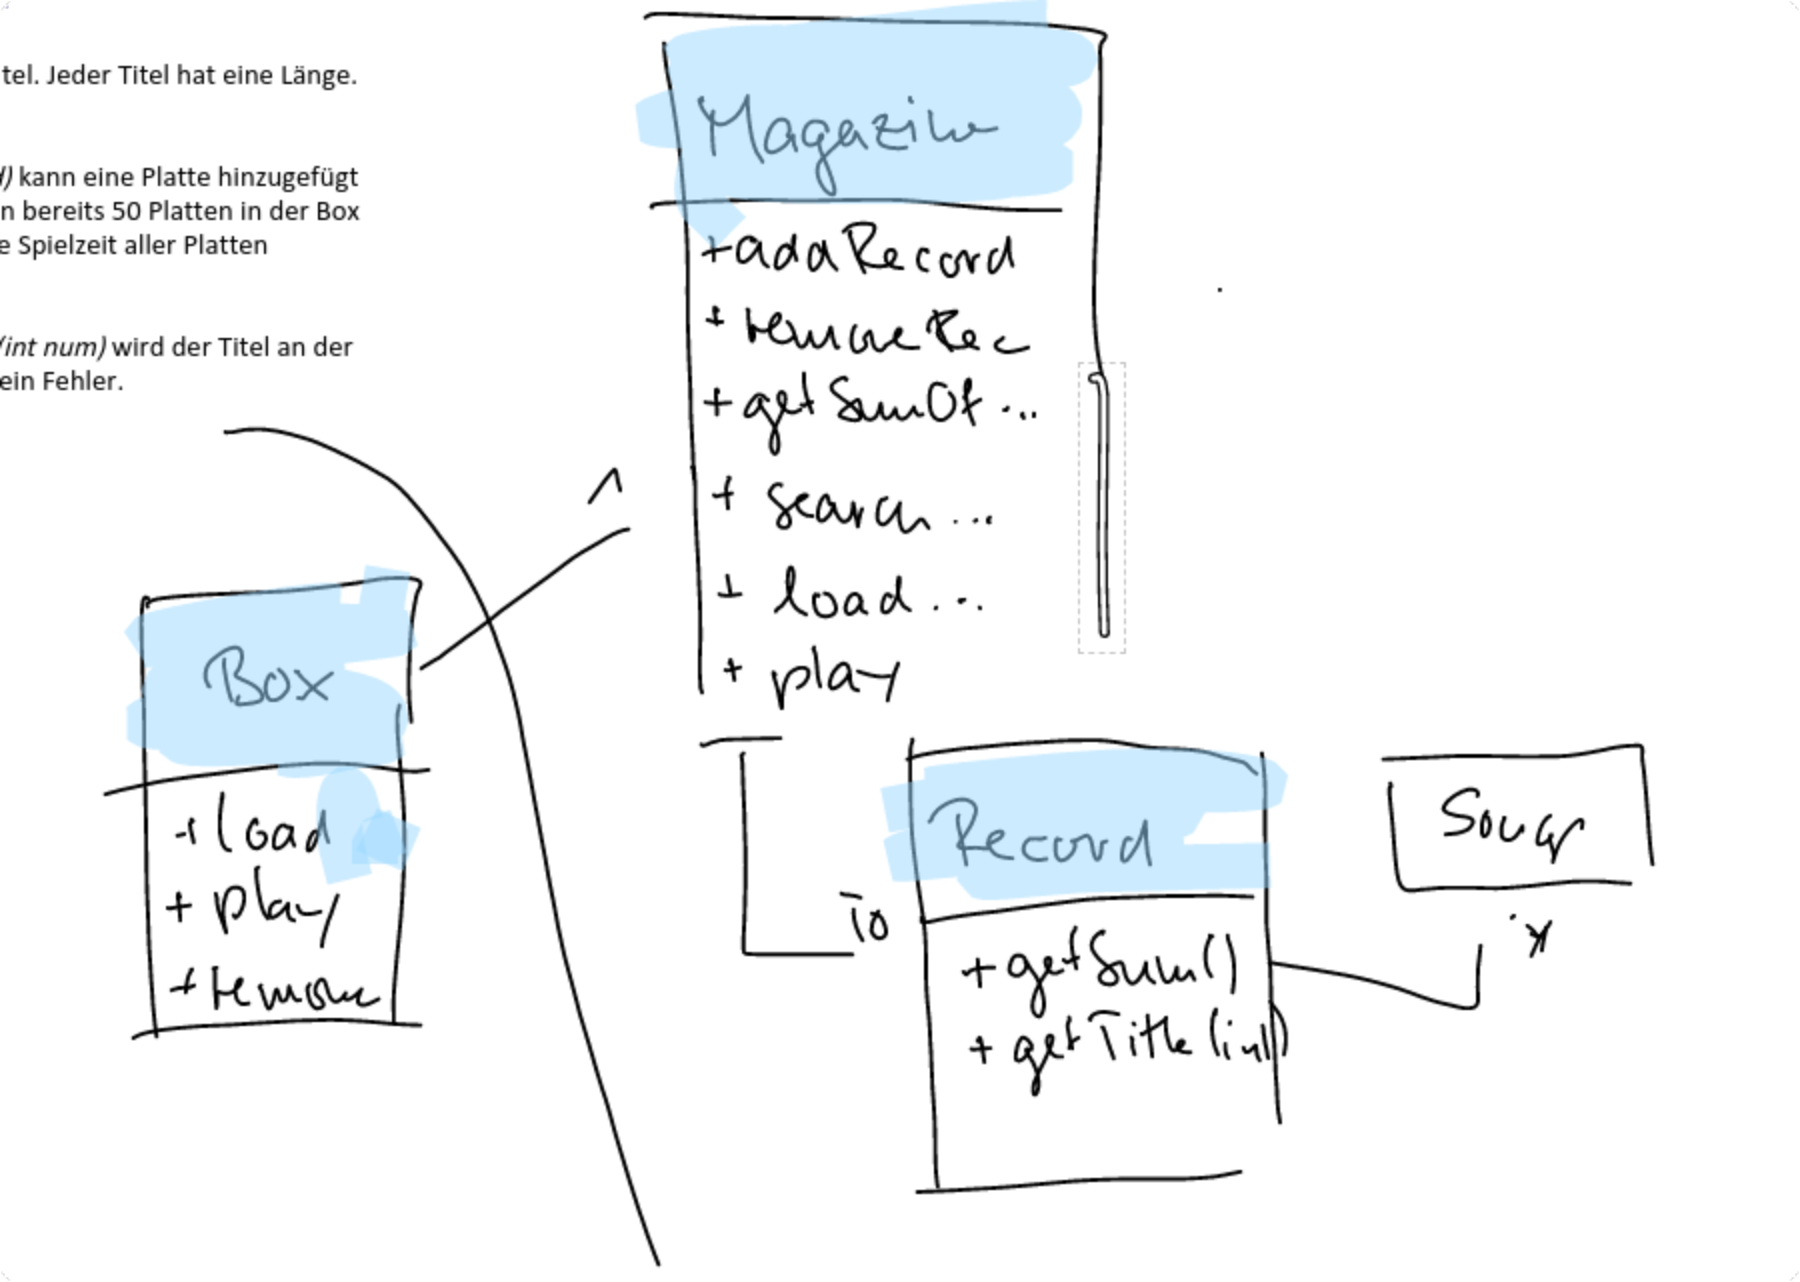 tel. Jeder Titel hat eine Länge.
d) kann eine Platte hinzugefügt
n bereits 50 Platten in der Box
e Spielzeit aller Platten
(int num) wird der Titel an der
ein Fehler.
Magazine
+addRecord
+ removeRec
+ getSumOf ...
+ search ...
+ load ...
+ play
1
Box
+ load
+ play
+ remove
Record
+ getSum()
+ getTitle(int)
Song
*